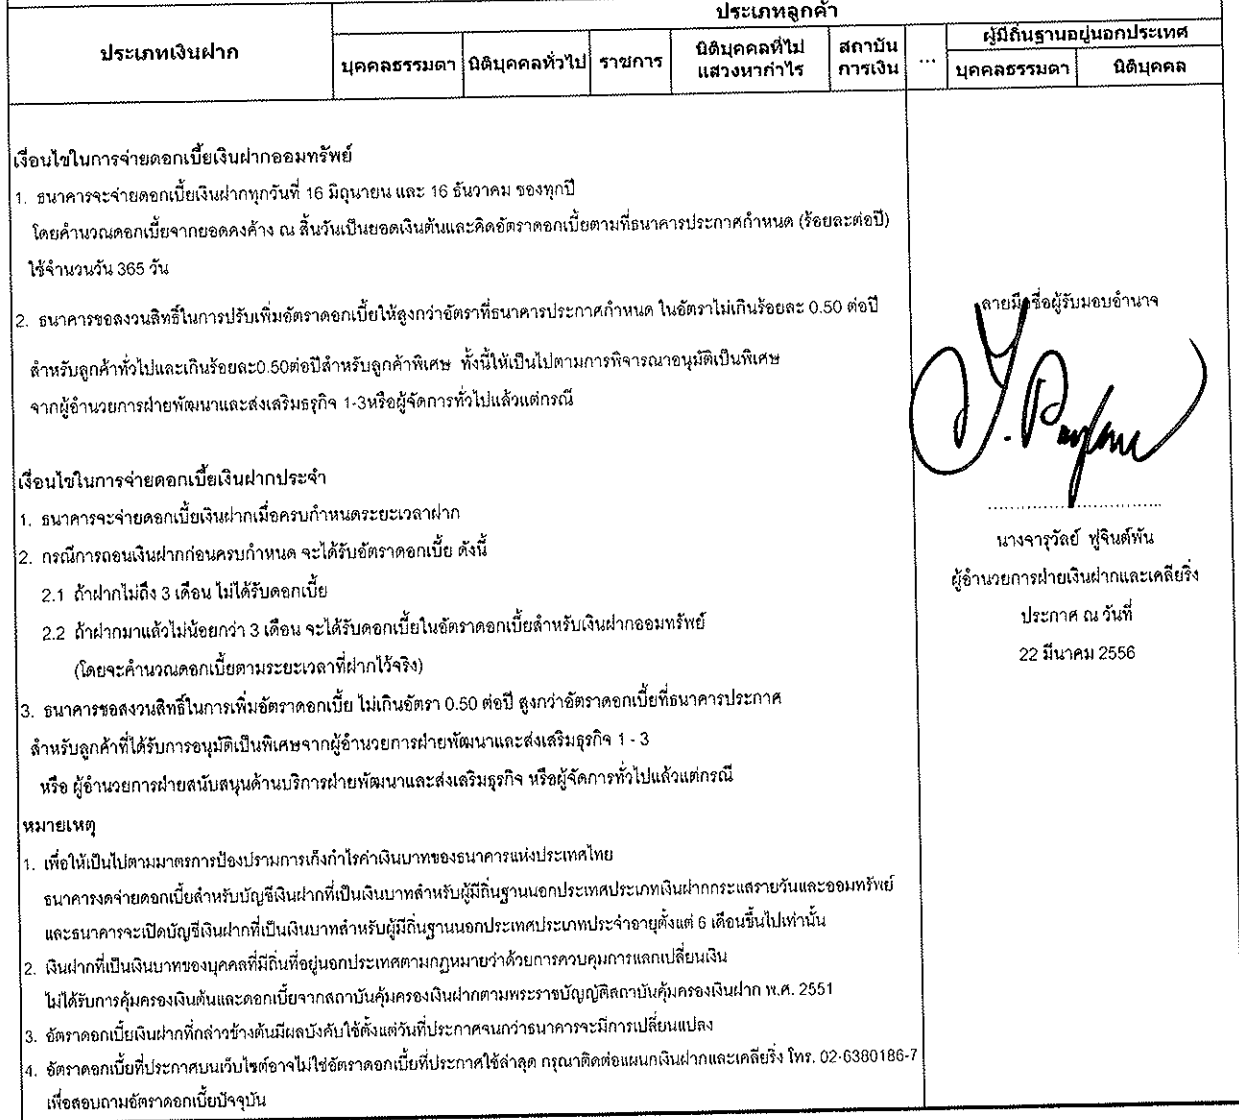 ประเภทเงินฝาก
ประเภทลูกค้า
บุคคลธรรมดา
นิติบุคคลทั่วไป
ราชการ
นิติบุคคลที่ไม่
แสวงหากำไร
สถาบัน
การเงิน
...
ผู้มีถิ่นฐานอยู่นอกประเทศ
บุคคลธรรมดา
นิติบุคคล
เงื่อนไขในการจ่ายดอกเบี้ยเงินฝากออมทรัพย์
1. ธนาคารจะจ่ายดอกเบี้ยเงินฝากทุกวันที่ 16 มิถุนายน และ 16 ธันวาคม ของทุกปี
โดยคำนวณดอกเบี้ยจากยอดคงค้าง ณ สิ้นวันเป็นยอดเงินต้นและคิดอัตราดอกเบี้ยตามที่ธนาคารประกาศกำหนด (ร้อยละต่อปี)
ใช้จำนวนวัน 365 วัน
2. ธนาคารขอสงวนสิทธิ์ในการปรับเพิ่มอัตราดอกเบี้ยให้สูงกว่าอัตราที่ธนาคารประกาศกำหนด ในอัตราไม่เกินร้อยละ 0.50 ต่อปี
สำหรับลูกค้าทั่วไปและเกินร้อยละ0.50ต่อปีสำหรับลูกค้าพิเศษ ทั้งนี้ให้เป็นไปตามการพิจารณาอนุมัติเป็นพิเศษ
จากผู้อำนวยการฝ่ายพัฒนาและส่งเสริมธุรกิจ 1-3หรือผู้จัดการทั่วไปแล้วแต่กรณี
เงื่อนไขในการจ่ายดอกเบี้ยเงินฝากประจำ
1. ธนาคารจะจ่ายดอกเบี้ยเงินฝากเมื่อครบกำหนดระยะเวลาฝาก
2. กรณีการถอนเงินฝากก่อนครบกำหนด จะได้รับอัตราดอกเบี้ย ดังนี้
2.1 ถ้าฝากไม่ถึง 3 เดือน ไม่ได้รับดอกเบี้ย
2.2 ถ้าฝากมาแล้วไม่น้อยกว่า 3 เดือน จะได้รับดอกเบี้ยในอัตราดอกเบี้ยสำหรับเงินฝากออมทรัพย์
(โดยจะคำนวณดอกเบี้ยตามระยะเวลาที่ฝากไว้จริง)
3. ธนาคารขอสงวนสิทธิ์ในการเพิ่มอัตราดอกเบี้ย ไม่เกินอัตรา 0.50 ต่อปี สูงกว่าอัตราดอกเบี้ยที่ธนาคารประกาศ
สำหรับลูกค้าที่ได้รับการอนุมัติเป็นพิเศษจากผู้อำนวยการฝ่ายพัฒนาและส่งเสริมธุรกิจ 1 - 3
หรือ ผู้อำนวยการฝ่ายสนับสนุนด้านบริการฝ่ายพัฒนาและส่งเสริมธุรกิจ หรือผู้จัดการทั่วไปแล้วแต่กรณี
หมายเหตุ
1. เพื่อให้เป็นไปตามมาตรการป้องปรามการเก็งกำไรค่าเงินบาทของธนาคารแห่งประเทศไทย
ธนาคารงดจ่ายดอกเบี้ยสำหรับบัญชีเงินฝากที่เป็นเงินบาทสำหรับผู้มีถิ่นฐานนอกประเทศประเภทเงินฝากกระแสรายวันและออมทรัพย์
และธนาคารจะเปิดบัญชีเงินฝากที่เป็นเงินบาทสำหรับผู้มีถิ่นฐานนอกประเทศประเภทประจำอายุตั้งแต่ 6 เดือนขึ้นไปเท่านั้น
2. เงินฝากที่เป็นเงินบาทของบุคคลที่มีถิ่นที่อยู่นอกประเทศตามกฎหมายว่าด้วยการควบคุมการแลกเปลี่ยนเงิน
ไม่ได้รับการคุ้มครองเงินต้นและดอกเบี้ยจากสถาบันคุ้มครองเงินฝากตามพระราชบัญญัติสถาบันคุ้มครองเงินฝาก พ.ศ. 2551
3. อัตราดอกเบี้ยเงินฝากที่กล่าวข้างต้นมีผลบังคับใช้ตั้งแต่วันที่ประกาศจนกว่าธนาคารจะมีการเปลี่ยนแปลง
4. อัตราดอกเบี้ยที่ประกาศบนเว็บไซต์อาจไม่ใช่อัตราดอกเบี้ยที่ประกาศใช้ล่าสุด กรุณาติดต่อแผนกเงินฝากและเคลียริ่ง โทร. 02-6380186-7
เพื่อสอบถามอัตราดอกเบี้ยปัจจุบัน
ลายมือชื่อผู้รับมอบอำนาจ
นางจารุวัลย์ ฟูจินต์พัน
ผู้อำนวยการฝ่ายเงินฝากและเคลียริ่ง
ประกาศ ณ วันที่
22 มีนาคม 2556